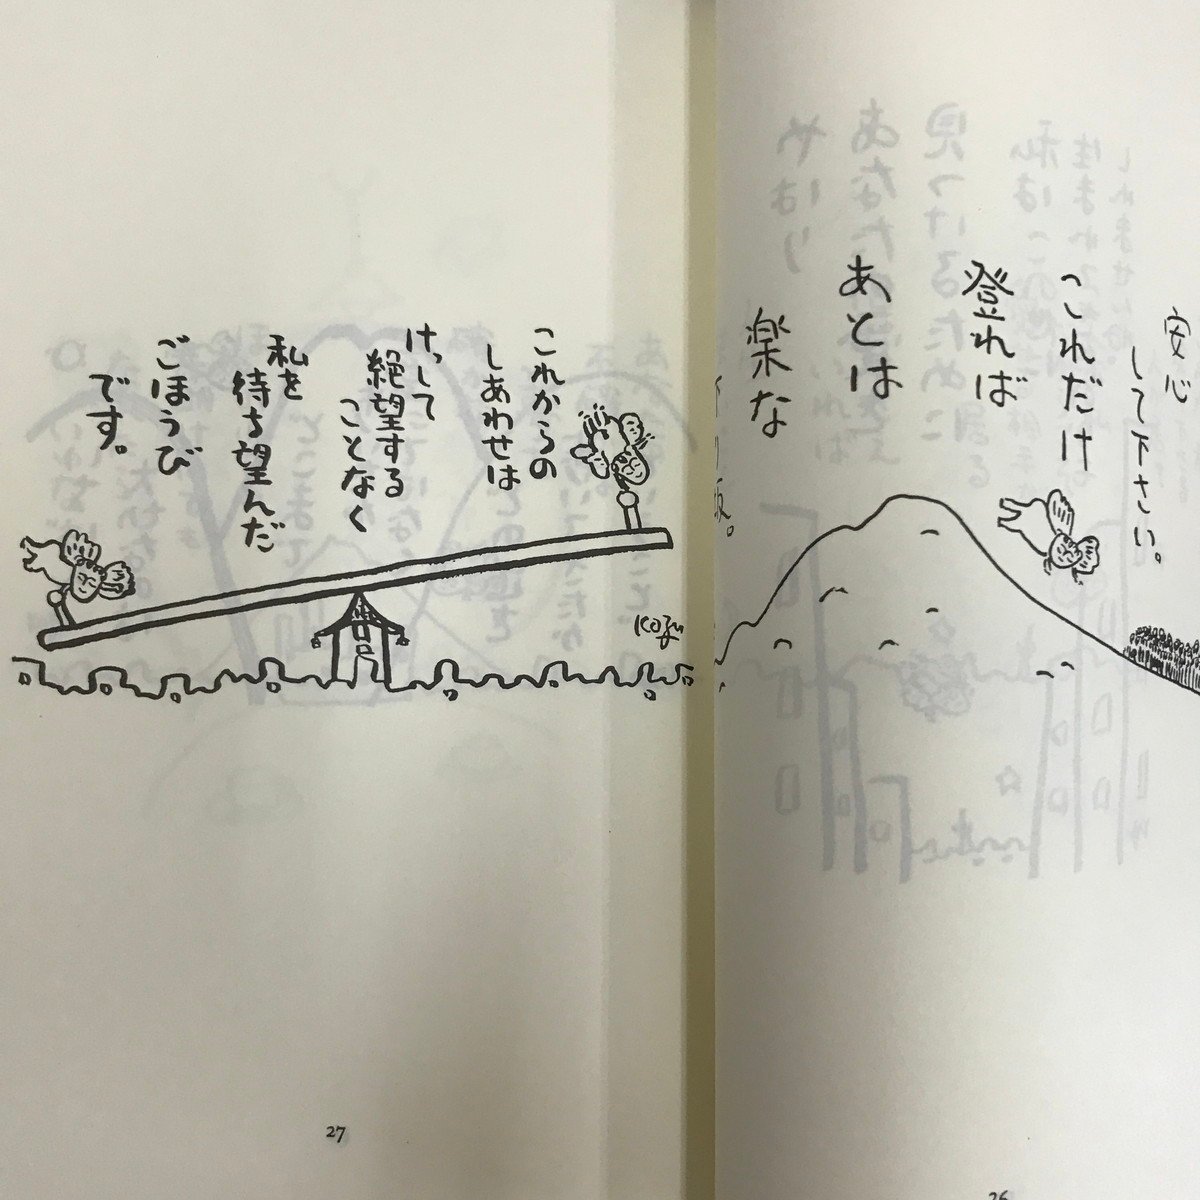 安心
して下さい。
これだけ
登れば
あとは
楽な
下り坂。
26
これからの
しあわせは
けっして
絶望する
ことなく
私を
待ち望んだ
ごほうび
です。
Kozu
27